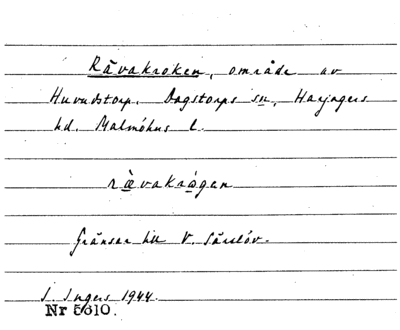 Råvakroken, område av
Huvudstorp. Dagstorps sn, Harjagers
hd. Malmöhus l.
rævakrågen
Gränsar till V. Särslöv.
I. Ingers 1944.
Nr 5610.